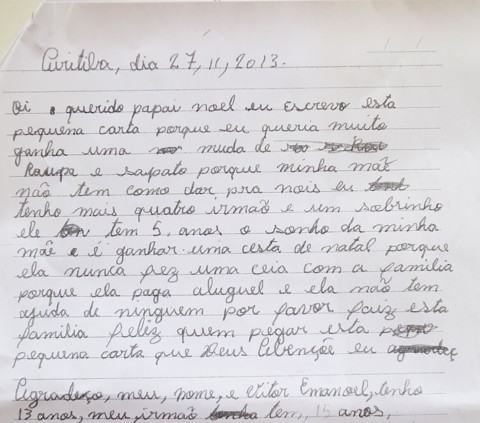 Curitiba, dia 27, 11, 2013.
Oi querido papai noel eu escrevo esta
pequena carta porque eu queria muito
ganha uma muda de
Roupa e sapato porque minha mãe
não tem como dar, pra nois eu
tenho mais quatro irmão e um sobrinho
ele tem 5. anos o sonho da minha
mãe e é ganhar uma cesta de natal porque
ela nunca fez uma ceia com a familia
porque ela paga aluguel e ela não tem
ajuda de ninguem por favor faiz esta
familia feliz quem pegar esta
pequena carta que Deus eu
Agradeço, meu, nome, e Vitor Emanoel, tenho
13 anos, meu, irmão tem, 15 anos,